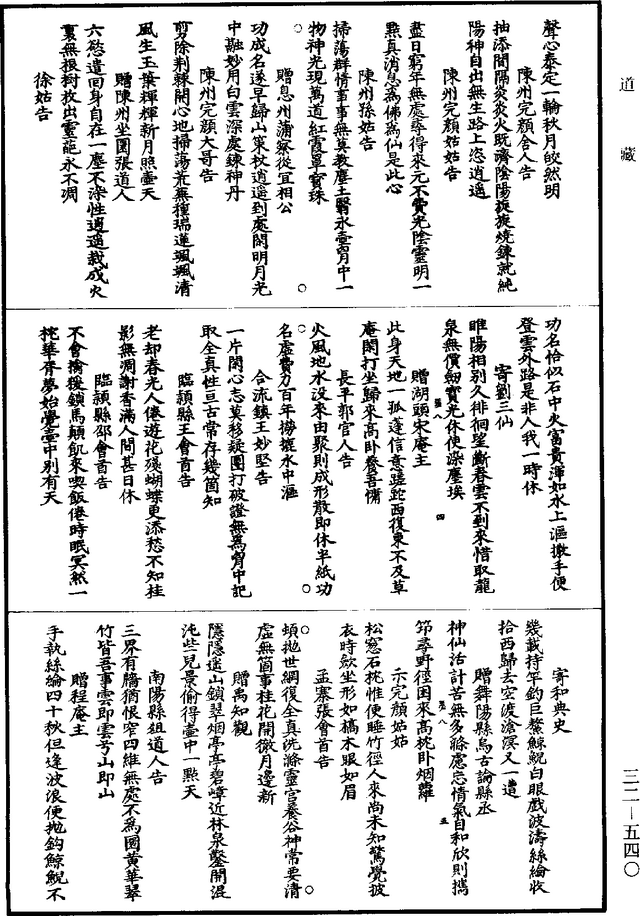 道藏
聲心泰定一輪秋月皎然明
陳州完顏舍人告
抽添間隔炎炎火既濟陰陽旋旋燒鍊就純
陽神自出無生路上恣逍遥
陳州完顏姑姑告
盡日窮年無處尋得來元不費光陰靈明一
點真消息為佛為仙是此心
陳州孫姑告
掃蕩群情事事無莫教塵土翳冰壺胷中一
物神光現萬道紅霞罩寶珠
贈息州蕭察從宜相公
功成名遂早歸山策杖逍遥到處閑明月光
中融妙用白雲深處鍊神丹
陳州完顏大哥告
剪除荆棘開心地掃蕩荒蕪種瑞蓮颯颯清
風生玉葉輝輝新月照壺天
贈陳州坐圜張道人
六慾遣回身自在一塵不染性逍遥栽成火
裏無根樹救出靈龍永不凋
徐姑告
功名恰似石中火富貴渾如水上漚撒手便
登雲外路是非人我一時休
寄劉三仙
睢陽相别久徘徊望斷春雲不到來惜取龍
泉無價劒寶光休使染塵埃
贈湖頭宋庵主
此身天地一孤蓬信意蹉跎西復東不及草
庵閑打坐歸來高卧養吾慵
長平郭官人告
火風地水沒來由聚則成形散即休半紙功
名虛費力百年撈摝水中漚
合流鎮王妙堅告
一片閑心志莫移疑團打破證無為胷中記
取全真性亘古常存幾箇知
臨潁縣王會首告
老却春光人倦遊花殘蝴蝶更添愁不知桂
影無凋謝香滿人間甚日休
臨潁縣邵會首告
不會擒猨鎖馬顛飢來喫飯倦時眠冥然一
枕華胥夢始覺壺中別有天
寄和典史
幾載持竿釣巨鰲鯨鯢白眼戲波濤絲綸收
拾西歸去空渡滄溟又一遭
贈舞陽縣馬古論縣丞
神仙活計苦無多滌慮忘情氣自和欣則攜
笻尋野徑困來高枕卧烟蘿
示完顏姑姑
松窓石枕惟便睡竹徑人來尚未知驚覺披
衣時歘坐形如槁木眼如眉
孟寨張會首告
頓抛世網復全真洗滌靈宫養谷神常要清
虛無箇事桂花開徹月邊新
贈禹知觀
隱隱遥山鎖翠烟亭亭碧嶂近林泉鑿開混
沌些兒景偷得壺中一點天
南陽縣祖道人告
三界有牆猶恨窄四維無處不為圜黄華翠
竹皆吾事雲即雲兮山即山
贈程庵主
手執絲綸四十秋但逢波浪便抛鈎鯨鯢不
三二—五四〇